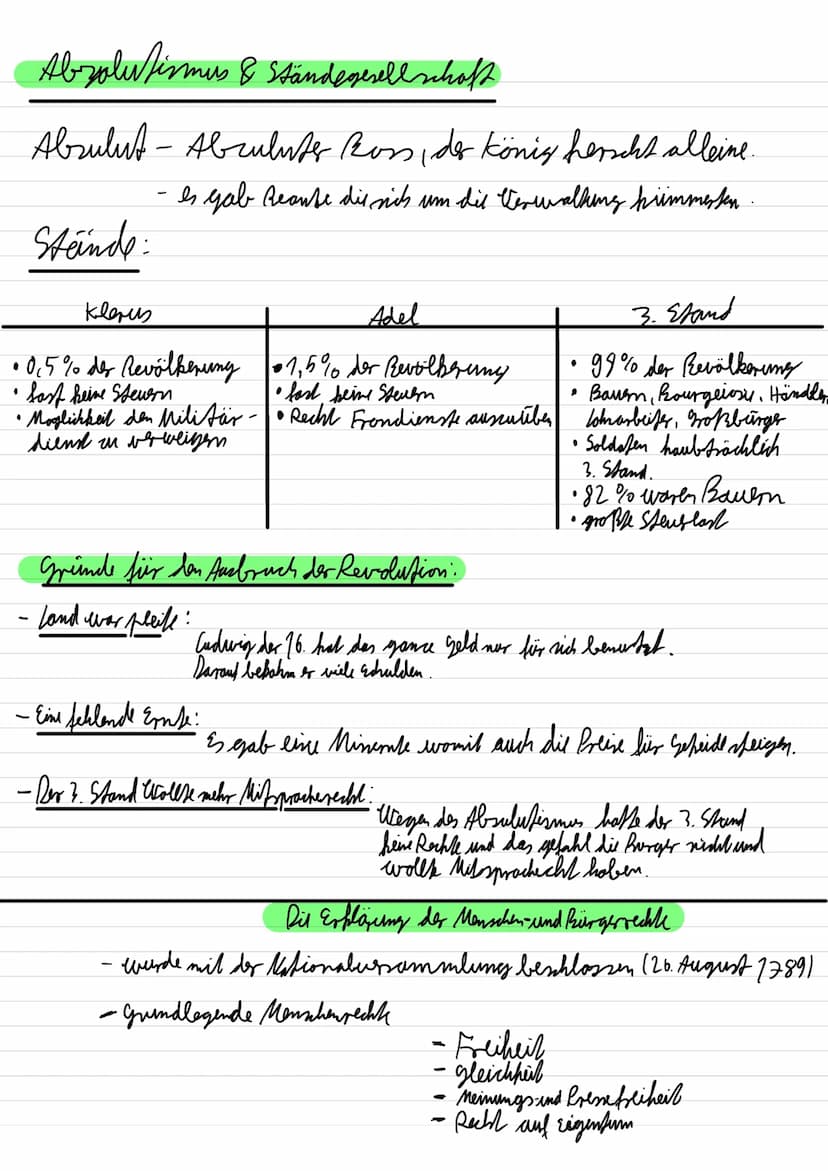 Absolutismus & Ständegesellschaft
Absulut - Absuluter Boss, der König herscht alleine.
- es gab Beamte die sich um die Verwaltung kümmerten.
Stände:
Klerus
Adel
3. Stand
• 0,5% der Bevölkerung
• fast keine Steuern
• Möglichkeit den Militär-
dienst zu verweigern
• 1,5% der Bevölkerung
• fast keine Steuern
• Recht Frondienste auszuüben
• 99% der Bevölkerung
• Bauern, Bourgeiosie, Händler,
Lohnarbeiter, Großbürger
• Soldaten haubträchlich
3. Stand.
• 82% waren Bauern
• große Steuerlast
Gründe für den Ausbruch der Revolution:
- Land war pleite:
Ludwig der 16. hat das ganze Geld nur für sich benutzt.
Darauf bekahm er viele Schulden.
- Eine fehlende Ernte:
Es gab eine Minernte womit auch die Preise für Geteide steigen.
- Der 3. Stand wollte mehr Mitspracherecht:
Wegen des Absulutismus hatte der 3. Stand
keine Rechte und das gefahl die Burger nicht und
wollte Mitsprachecht haben.
Die Erklärung der Menschen- und Bürgerrechte
- wurde mit der Nationalversammlung beschlossen (26. August 1789)
- Grundlegende Menschenrechte
- Freiheit
- Gleichheit
- Meinungs- und Pressefreiheit
- Recht auf Eigentum